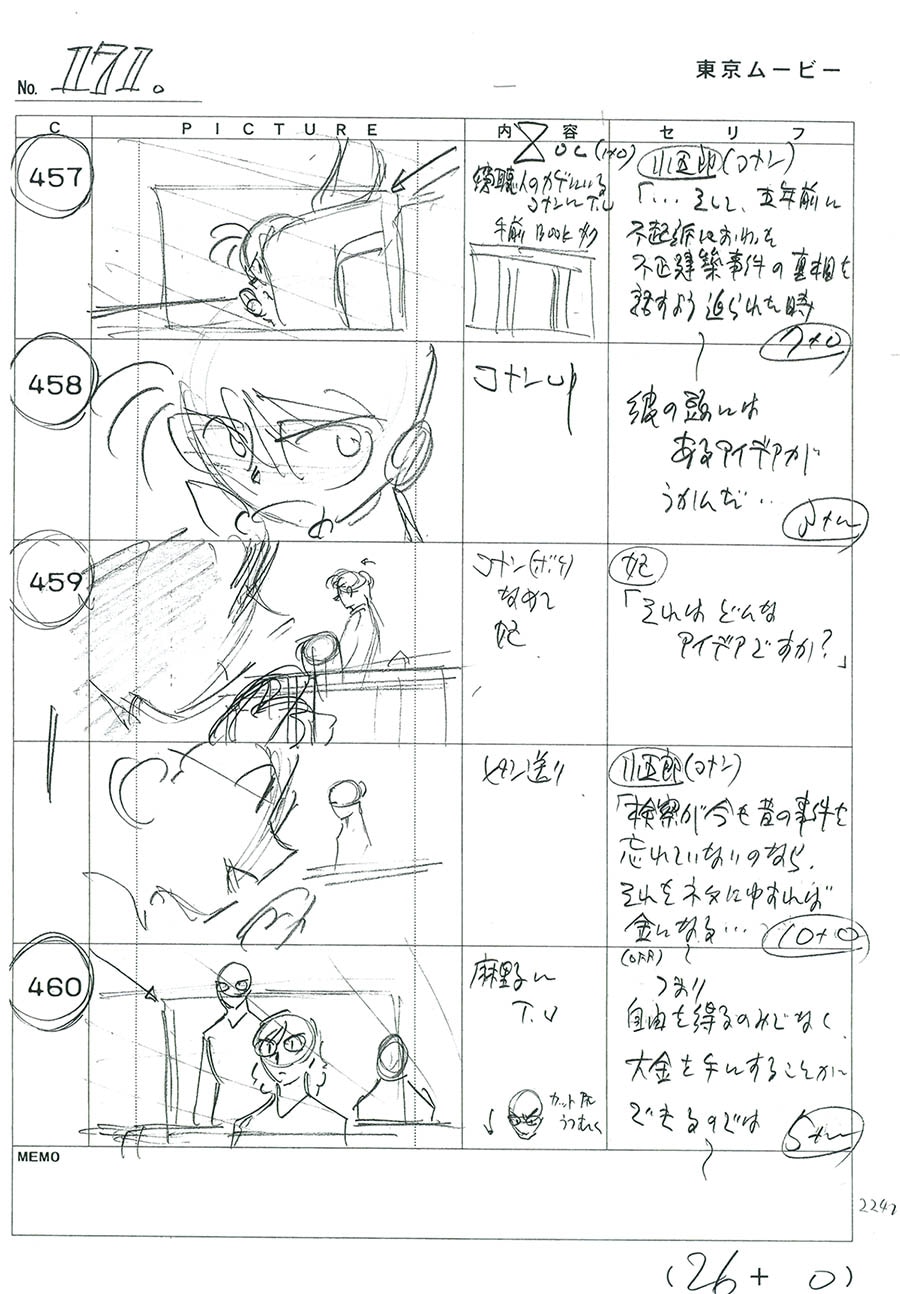 No. 171.
東京ムービー
C
PICTURE
内 容
セリフ
457
OL (1+0)
傍聴人のカゲにいる
コナンに T.U
手前 BOOK
小五郎 (コナン)
「… そして、五年前に
不起訴におわった
不正建築事件の真相を
話すよう迫られた時
7+0
458
コナン up
彼の頭には
あるアイデアが
うかんだ‥
459
コナン(ボケ)
なめて
妃
妃
「それは どんな
アイデアですか?」
ピン送り
小五郎 (コナン)
「検察が今も昔の事件を
忘れていないのなら、
それをネタにゆすれば
金になる…
10+0
460
T.U
カット尻
うつむく
(OFF)
つまり
自由を得るのみじなく
大金を手にすることが
できるのでは
MEMO
(26 + 0)